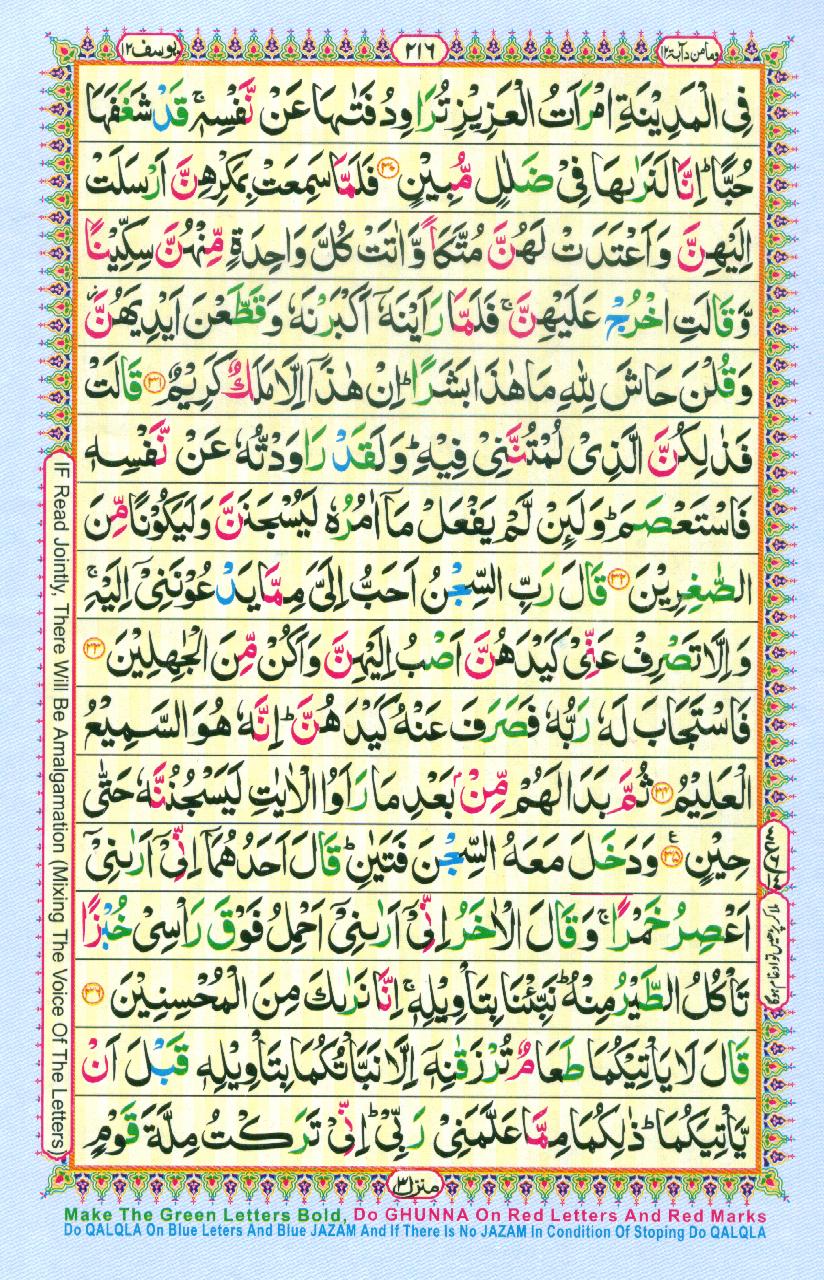 وما من دآبة ١٢
٢١٦
يوسف ١٢
فِى الْمَدِيْنَةِ امْرَاَتُ الْعَزِيْزِ تُرَاوِدُ فَتٰىهَا عَنْ نَّفْسِهٖ ۚ قَدْ شَغَفَهَا
حُبًّا ؕ اِنَّا لَنَرٰىهَا فِىْ ضَلٰلٍ مُّبِيْنٍ ﴿۳۰﴾ فَلَمَّا سَمِعَتْ بِمَكْرِهِنَّ اَرْسَلَتْ
اِلَيْهِنَّ وَاَعْتَدَتْ لَهُنَّ مُتَّكَاً وَّاٰتَتْ كُلَّ وَاحِدَةٍ مِّنْهُنَّ سِكِّيْنًا
وَّقَالَتِ اخْرُجْ عَلَيْهِنَّ ۚ فَلَمَّا رَاَيْنَهٗۤ اَكْبَرْنَهٗ وَقَطَّعْنَ اَيْدِيَهُنَّ
وَقُلْنَ حَاشَ لِلّٰهِ مَا هٰذَا بَشَرًا ؕ اِنْ هٰذَاۤ اِلَّا مَلَكٌ كَرِيْمٌ ﴿۳۱﴾ قَالَتْ
فَذٰلِكُنَّ الَّذِىْ لُمْتُنَّنِىْ فِيْهِ ؕ وَلَقَدْ رَاوَدْتُّهٗ عَنْ نَّفْسِهٖ
فَاسْتَعْصَمَ ؕ وَلَئِنْ لَّمْ يَفْعَلْ مَاۤ اٰمُرُهٗ لَيُسْجَنَنَّ وَلَيَكُوْنًا مِّنَ
الصّٰغِرِيْنَ ﴿۳۲﴾ قَالَ رَبِّ السِّجْنُ اَحَبُّ اِلَىَّ مِمَّا يَدْعُوْنَنِىْۤ اِلَيْهِ ۚ
وَاِلَّا تَصْرِفْ عَنِّىْ كَيْدَهُنَّ اَصْبُ اِلَيْهِنَّ وَاَكُنْ مِّنَ الْجٰهِلِيْنَ ﴿۳۳﴾
فَاسْتَجَابَ لَهٗ رَبُّهٗ فَصَرَفَ عَنْهُ كَيْدَهُنَّ ؕ اِنَّهٗ هُوَ السَّمِيْعُ
الْعَلِيْمُ ﴿۳۴﴾ ثُمَّ بَدَا لَهُمْ مِّنْۢ بَعْدِ مَا رَاَوُا الْاٰيٰتِ لَيَسْجُنُنَّهٗ حَتّٰى
حِيْنٍ ﴿۳۵﴾ ع وَدَخَلَ مَعَهُ السِّجْنَ فَتَيٰنِ ؕ قَالَ اَحَدُهُمَاۤ اِنِّىْۤ اَرٰىنِىْۤ
اَعْصِرُ خَمْرًا ۚ وَقَالَ الْاٰخَرُ اِنِّىْۤ اَرٰىنِىْۤ اَحْمِلُ فَوْقَ رَاْسِىْ خُبْزًا
تَاْكُلُ الطَّيْرُ مِنْهُ ؕ نَبِّئْنَا بِتَاْوِيْلِهٖ ۚ اِنَّا نَرٰىكَ مِنَ الْمُحْسِنِيْنَ ﴿۳۶﴾
قَالَ لَا يَاْتِيْكُمَا طَعَامٌ تُرْزَقٰنِهٖۤ اِلَّا نَبَّاْتُكُمَا بِتَاْوِيْلِهٖ قَبْلَ اَنْ
يَّاْتِيَكُمَا ؕ ذٰلِكُمَا مِمَّا عَلَّمَنِىْ رَبِّىْ ؕ اِنِّىْ تَرَكْتُ مِلَّةَ قَوْمٍ
IF Read Jointly, There Will Be Amalgamation (Mixing The Voice Of The Letters)
منزل ٣
Make The Green Letters Bold, Do GHUNNA On Red Letters And Red Marks
Do QALQLA On Blue Leters And Blue JAZAM And If There Is No JAZAM In Condition Of Stoping Do QALQLA